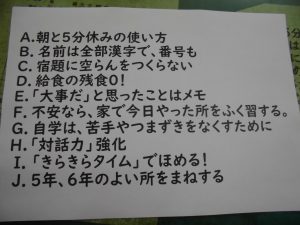 A.朝と5分休みの使い方
B.名前は全部漢字で、番号も
C.宿題に空らんをつくらない
D.給食の残食0!
E.「大事だ」と思ったことはメモ
F.不安なら、家で今日やった所をふく習する。
G.自学は、苦手やつまずきをなくすために
H.「対話力」強化
I.「きらきらタイム」でほめる!
J.5年、6年のよい所をまねする